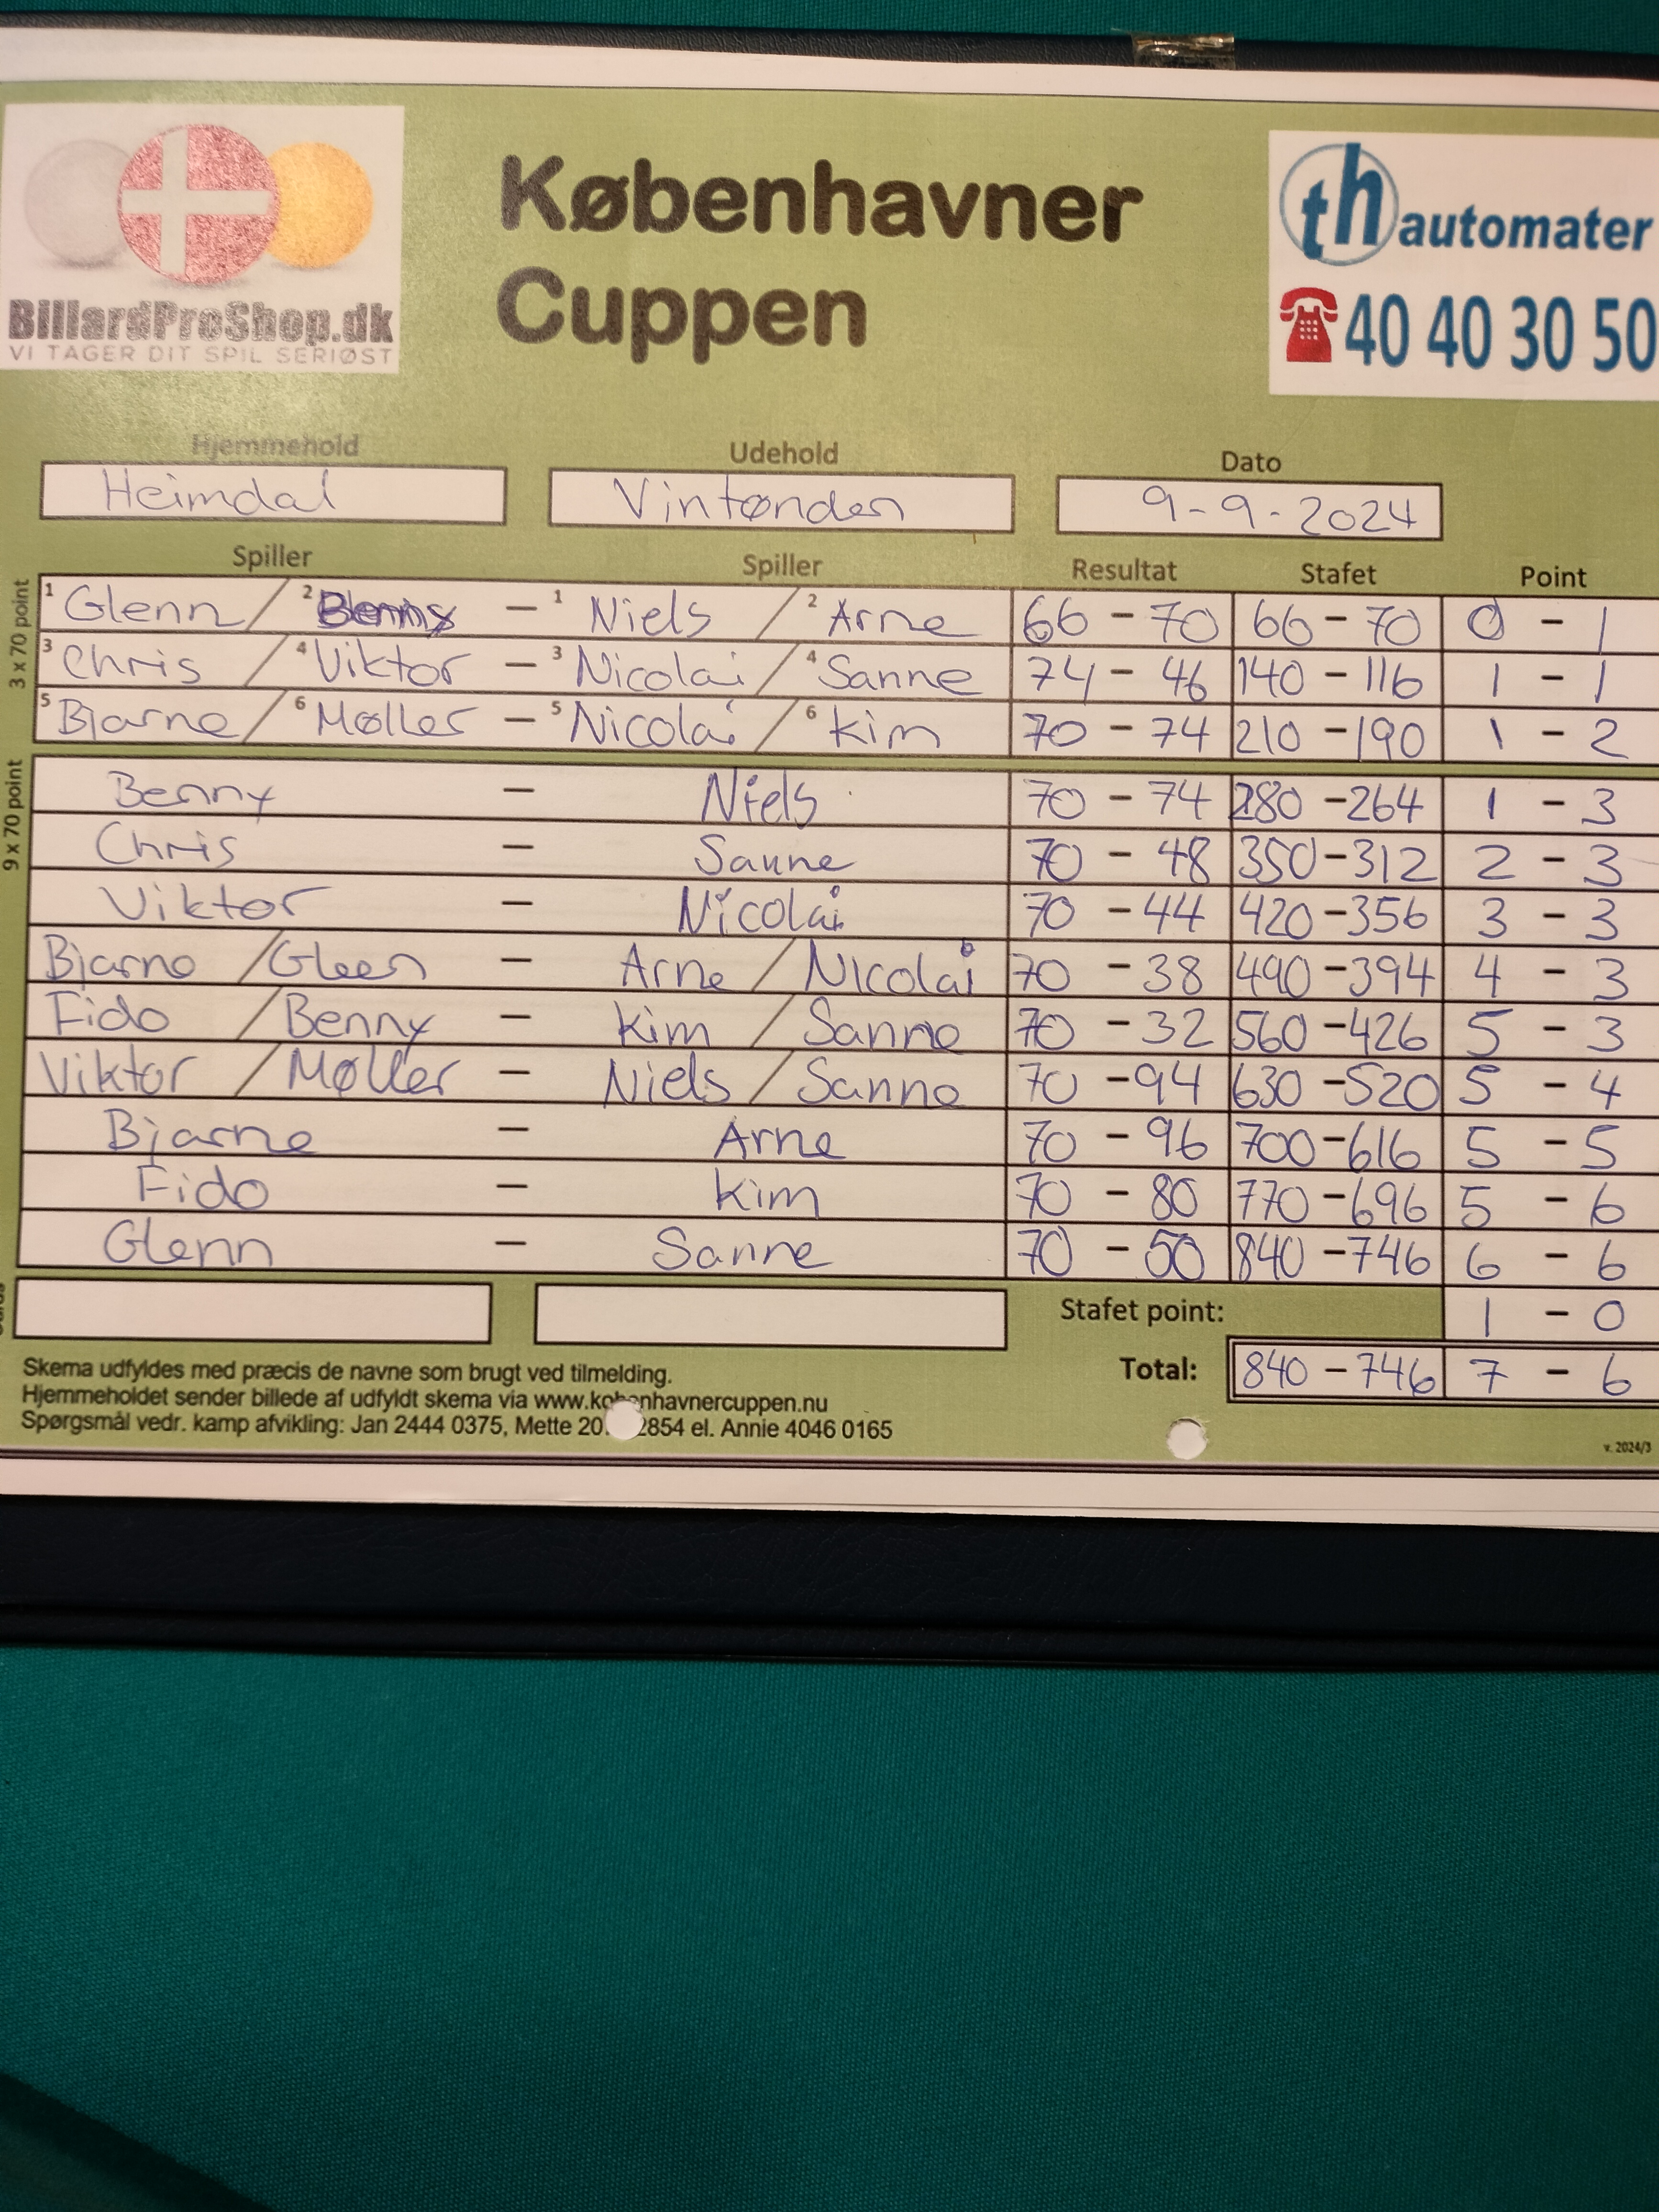 Københavner
Cuppen
BillardProShop.dk
VI TAGER DIT SPIL SERIØST
th automater
40 40 30 50
Hjemmehold Udehold Dato
Heimdal Vintønden 9-9-2024
Spiller Spiller Resultat Stafet Point
3 x 70 point
1 Glenn / 2 Benny - 1 Niels / 2 Arne 66 - 70 66 - 70 0 - 1
3 Chris / 4 Viktor - 3 Nicolai / 4 Sanne 74 - 46 140 - 116 1 - 1
5 Bjarne / 6 Møller - 5 Nicolai / 6 Kim 70 - 74 210 - 190 1 - 2
9 x 70 point
Benny - Niels 70 - 74 280 - 264 1 - 3
Chris - Sanne 70 - 48 350 - 312 2 - 3
Viktor - Nicolai 70 - 44 420 - 356 3 - 3
Bjarne / Gleen - Arne / Nicolai 70 - 38 490 - 394 4 - 3
Fido / Benny - Kim / Sanne 70 - 32 560 - 426 5 - 3
Viktor / Møller - Niels / Sanne 70 - 94 630 - 520 5 - 4
Bjarne - Arne 70 - 96 700 - 616 5 - 5
Fido - Kim 70 - 80 770 - 696 5 - 6
Glenn - Sanne 70 - 50 840 - 746 6 - 6
Stafet point: 1 - 0
Total: 840 - 746 7 - 6
Skema udfyldes med præcis de navne som brugt ved tilmelding.
Hjemmeholdet sender billede af udfyldt skema via www.københavnercuppen.nu
Spørgsmål vedr. kamp afvikling: Jan 2444 0375, Mette 20 2854 el. Annie 4046 0165
v. 2024/3